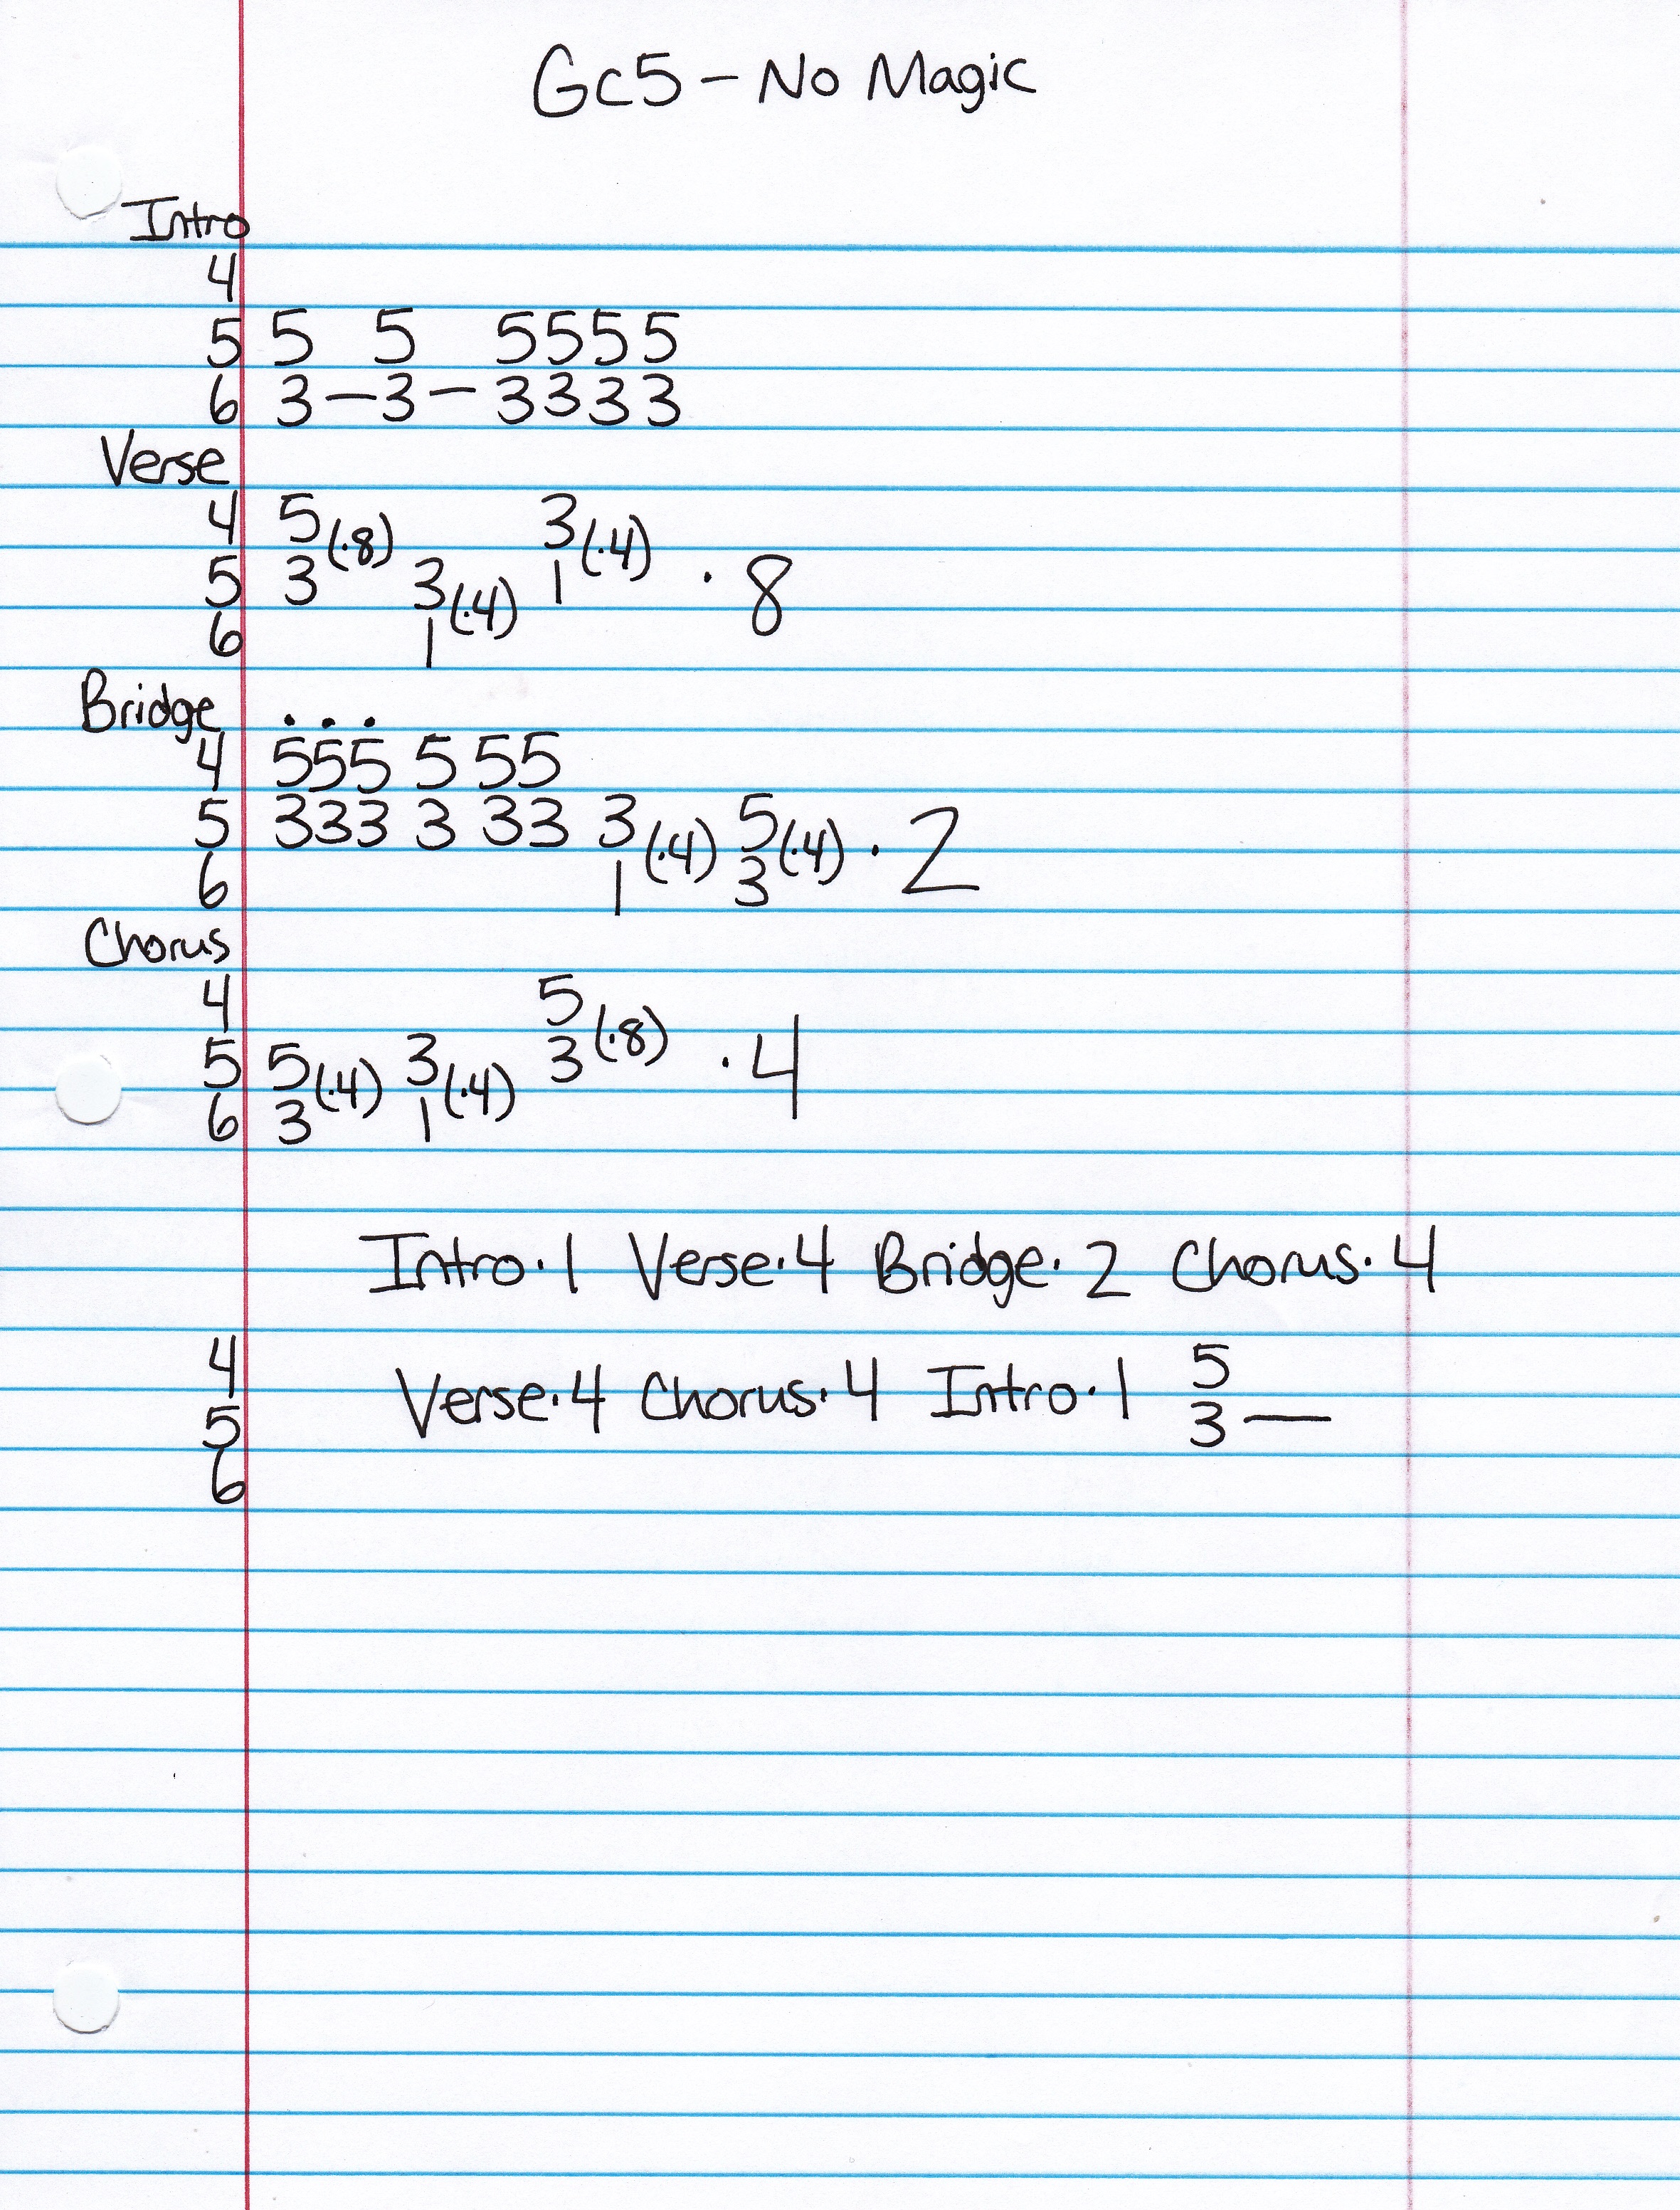 Gc5 - No Magic
Intro
4
5 5 5 5555
6 3—3—3333
Verse
4 5(·8) 3(·4)
5 3 3(·4) 1 · 8
6 1
Bridge . . .
4 555 5 55
5 333 3 33 3(·4) 5(·4) · 2
6 1 3
Chorus
4 5(·8)
5 5(·4) 3(·4) 3 · 4
6 3 1
Intro·1 Verse·4 Bridge·2 Chorus·4
4 5
5 Verse·4 Chorus·4 Intro·1 3—
6